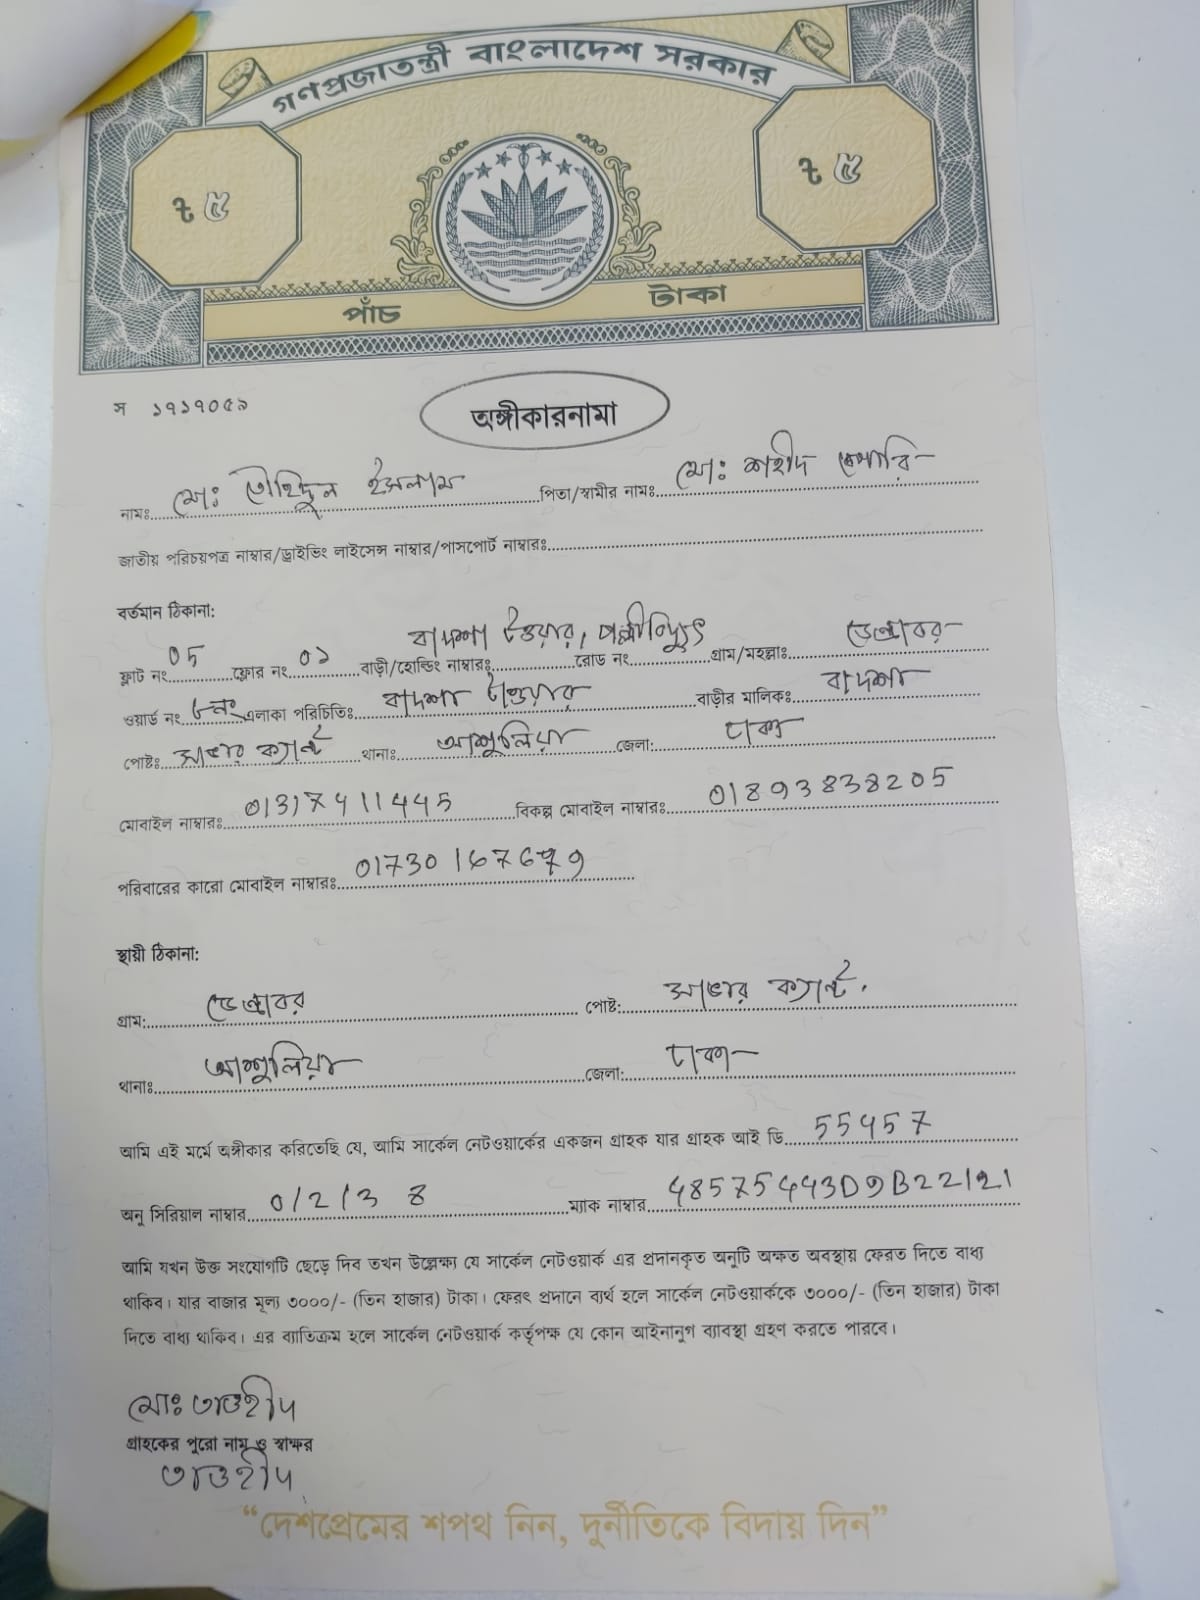 গণপ্রজাতন্ত্রী বাংলাদেশ সরকার
ট ৫ ট ৫
পাঁচ টাকা
স ১৭১৭০৫৯
অঙ্গীকারনামা
নামঃ মোঃ তৌহিদুল ইসলাম পিতা/স্বামীর নামঃ মোঃ শহীদ বেপারি
জাতীয় পরিচয়পত্র নাম্বার/ড্রাইভিং লাইসেন্স নাম্বার/পাসপোর্ট নাম্বারঃ
বর্তমান ঠিকানা:
ফ্লাট নং 05 ফ্লোর নং ০১ বাড়ী/হোল্ডিং নাম্বারঃ বাদশা টাওয়ার, পল্লীবিদ্যুৎ রোড নং গ্রাম/মহল্লাঃ ডেন্ডাবর
ওয়ার্ড নং ৮নং এলাকা পরিচিতিঃ বাদশা টাওয়ার বাড়ীর মালিকঃ বাদশা
পোষ্টঃ সাভার ক্যান্ট থানাঃ আশুলিয়া জেলা: ঢাকা
মোবাইল নাম্বারঃ 01317411445 বিকল্প মোবাইল নাম্বারঃ 01893838205
পরিবারের কারো মোবাইল নাম্বারঃ
স্থায়ী ঠিকানা:
গ্রাম: ডেন্ডাবর পোষ্ট: সাভার ক্যান্ট.
থানাঃ আশুলিয়া জেলা: ঢাকা
আমি এই মর্মে অঙ্গীকার করিতেছি যে, আমি সার্কেল নেটওয়ার্কের একজন গ্রাহক যার গ্রাহক আই ডি 55457
অনু সিরিয়াল নাম্বার 0/2/3 8 ম্যাক নাম্বার 48575443D9B22121
আমি যখন উক্ত সংযোগটি ছেড়ে দিব তখন উল্লেক্ষ্য যে সার্কেল নেটওয়ার্ক এর প্রদানকৃত অনুটি অক্ষত অবস্থায় ফেরত দিতে বাধ্য
থাকিব। যার বাজার মূল্য ৩০০০/- (তিন হাজার) টাকা। ফেরৎ প্রদানে ব্যর্থ হলে সার্কেল নেটওয়ার্ককে ৩০০০/- (তিন হাজার) টাকা
দিতে বাধ্য থাকিব। এর ব্যাতিক্রম হলে সার্কেল নেটওয়ার্ক কর্তৃপক্ষ যে কোন আইনানুগ ব্যাবস্থা গ্রহণ করতে পারবে।
মোঃ তাওহীদ
গ্রাহকের পুরো নাম ও স্বাক্ষর
তাওহীদ
“দেশপ্রেমের শপথ নিন, দুর্নীতিকে বিদায় দিন”